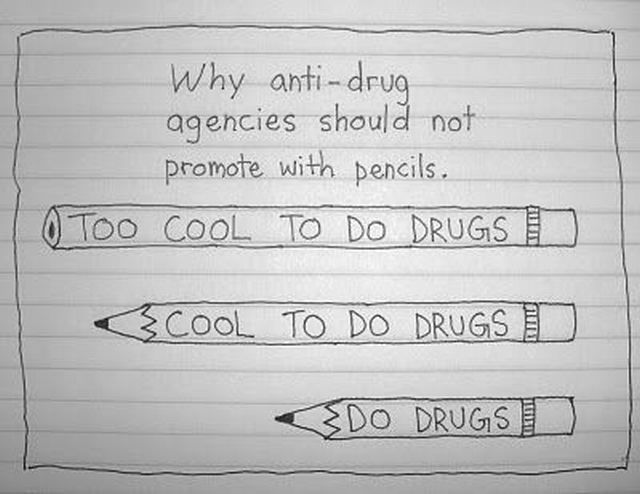 Why anti-drug
agencies should not
promote with pencils.
TOO COOL TO DO DRUGS
COOL TO DO DRUGS
DO DRUGS